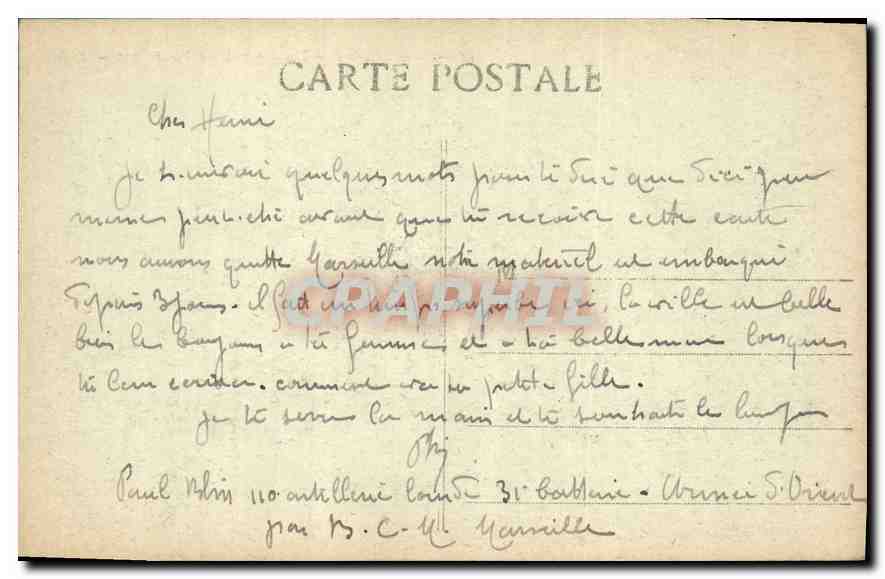 CARTE POSTALE
Cher Henri
Je quelques mots pour te dire que d'ici
peut-etre avant que tu recoive cette carte
nous aurons quitté Marseille notre materiel est embarqué
depuis 3 jours. il fait un temps superbe ici, la ville est belle
bien le bonjour a ta femme et a ta belle mere lorsque
tu leur comment va ta petite fille.
je te serre la main et te souhaite le bonjour
Paul 110 artillerie lourde 31e batterie. Armée d'Orient
par B.C.M. Marseille
CPAPHIL